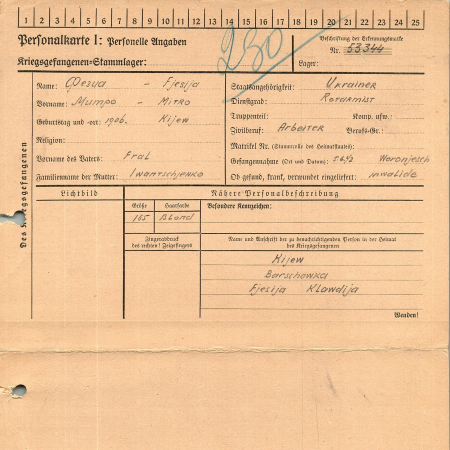 1 2 3 4 5 6 7 8 9 10 11 12 13 14 15 16 17 18 19 20 21 22 23 24 25
Personalkarte I: Personelle Angaben
Kriegsgefangenen-Stammlager:
230
Beschriftung der Erkennungsmarke
Nr. 53344
Lager:
Des Kriegsgefangenen
Name: Фезия - Fjesija
Vorname: Митро - Mitro
Geburtstag und -ort: 1906. Kijew
Religion:
Vorname des Vaters: Fral
Familienname der Mutter: Iwantschjenko
Staatsangehörigkeit: Ukrainer
Dienstgrad: Rotarmist
Truppenteil: Komp. usw.:
Zivilberuf: Arbeiter Berufs-Gr.:
Matrikel Nr. (Stammrolle des Heimatstaates):
Gefangennahme (Ort und Datum): Woronjesch
Ob gesund, krank, verwundet eingeliefert: inwalide
Lichtbild
Nähere Personalbeschreibung
Größe Haarfarbe
165 Blond
Besondere Kennzeichen:
Fingerabdruck
des rechten! Zeigefingers
Name und Anschrift der zu benachrichtigenden Person in der Heimat
des Kriegsgefangenen
Kijew
Barschowka
Fjesija Klawdija
Wenden!